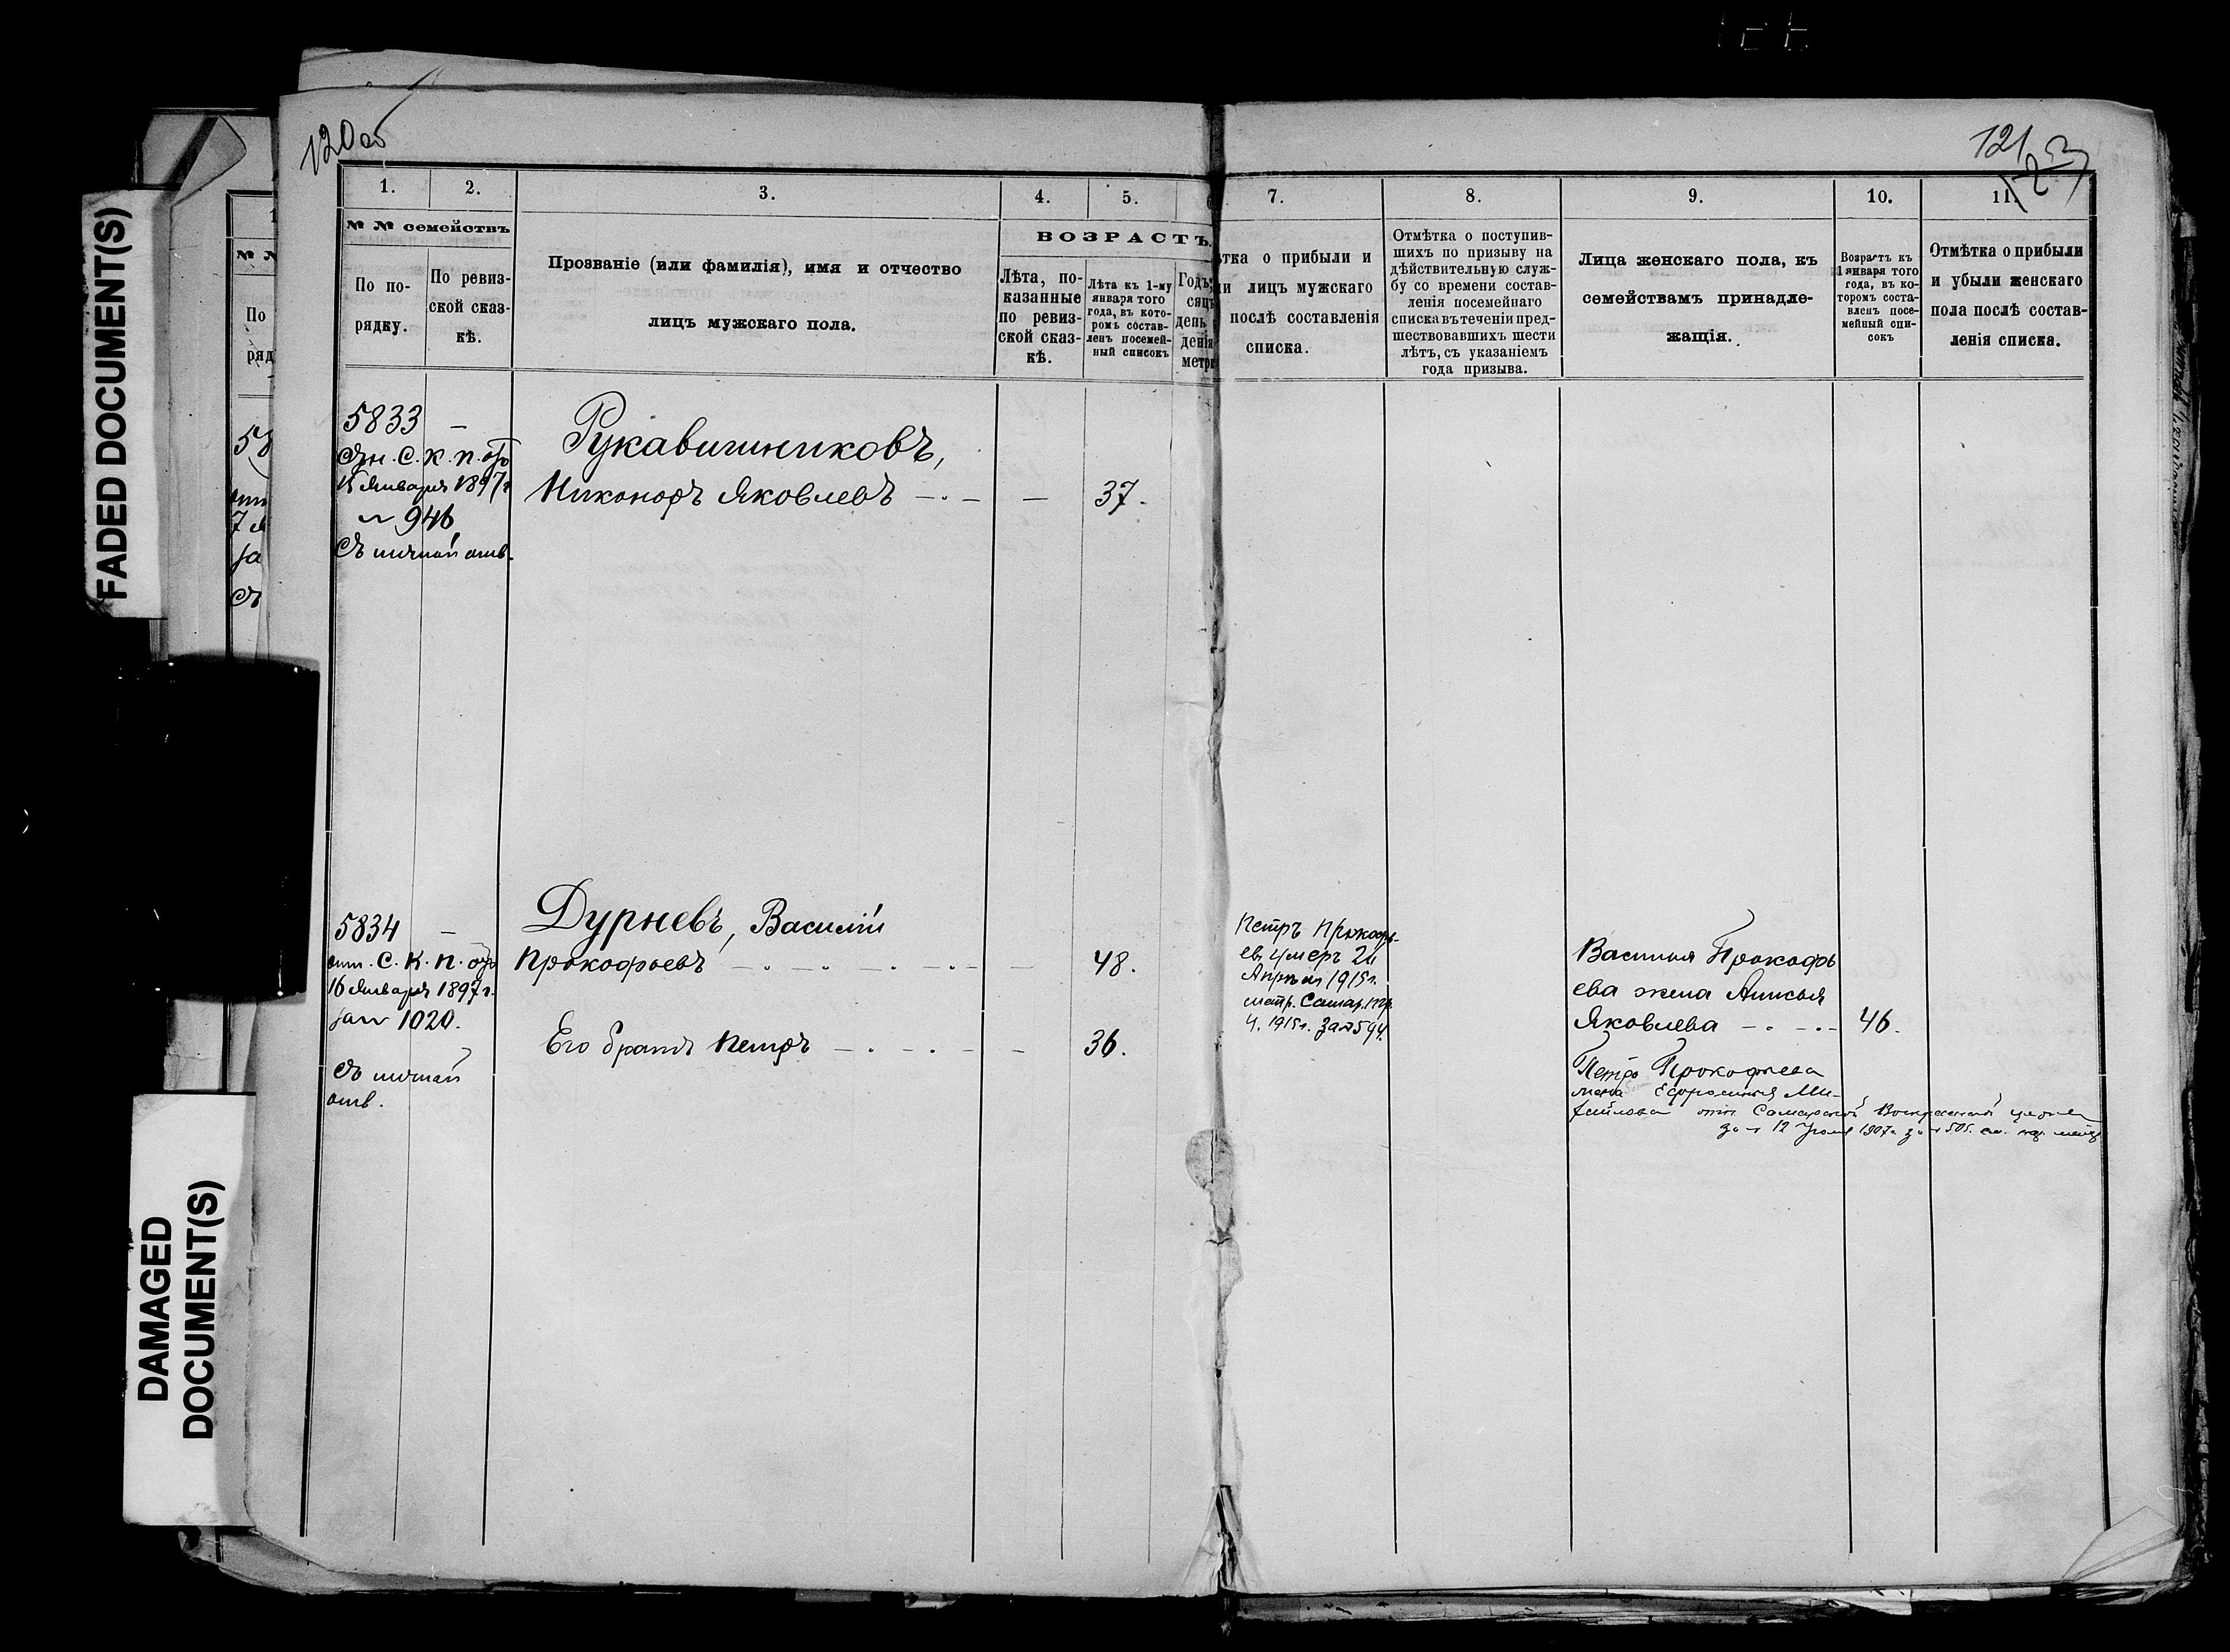 FADED DOCUMENT(S)
DAMAGED
DOCUMENT(S)
120об
121
1.
2.
3.
4.
5.
№ № семействъ
По по-
рядку.
По ревиз-
ской сказ-
кѣ.
Прозваніе (или фамилія), имя и отчество
лицъ мужскаго пола.
ВОЗРАСТЪ.
Лѣта, по-
казанные
по ревиз-
ской сказ-
кѣ.
Лѣта къ 1-му
января того
года, въ кото-
ромъ состав-
ленъ посемей-
ный списокъ
Годъ,
сяцъ
день
денія
метри
7.
8.
9.
10.
11.
тка о прибыли и
и лицъ мужскаго
послѣ составленія
списка.
Отмѣтка о поступив-
шихъ по призыву на
дѣйствительную служ-
бу со времени состав-
ленія посемейнаго
списка въ теченіи пред-
шествовавшихъ шести
лѣтъ, съ указаніемъ
года призыва.
Лица женскаго пола, къ
семействамъ принадле-
жащія.
Возрастъ къ
1 января того
года, въ ко-
торомъ соста-
вленъ посе-
мейный спи-
сокъ
Отмѣтка о прибыли
и убыли женскаго
пола послѣ состав-
ленія списка.
5833 —
С. К. П. отъ
15 Января 1897 г.
№ 946
Съ личной отв.
Рукавишниковъ,
Никоноръ Яковлевъ — 37.
5834 —
опт. С. К. П. отъ
16 Января 1897 г.
за № 1020.
Съ личной
отв.
Дурневъ, Василій
Прокофьевъ — 48.
Его братъ Петръ — 36.
Петръ Прокофь-
евъ умеръ 24
Апрѣля 1915 г.
метр. Самар.
ц. 1915 г. за № 594.
Василія Прокофь
ева жена Анисья
Яковлева — 46.
Петра Прокофьева
жена Ефросинья Ми-
хайлова опт. Самарской Воскресенской церкви
за № 12 1907 г. за № 505.